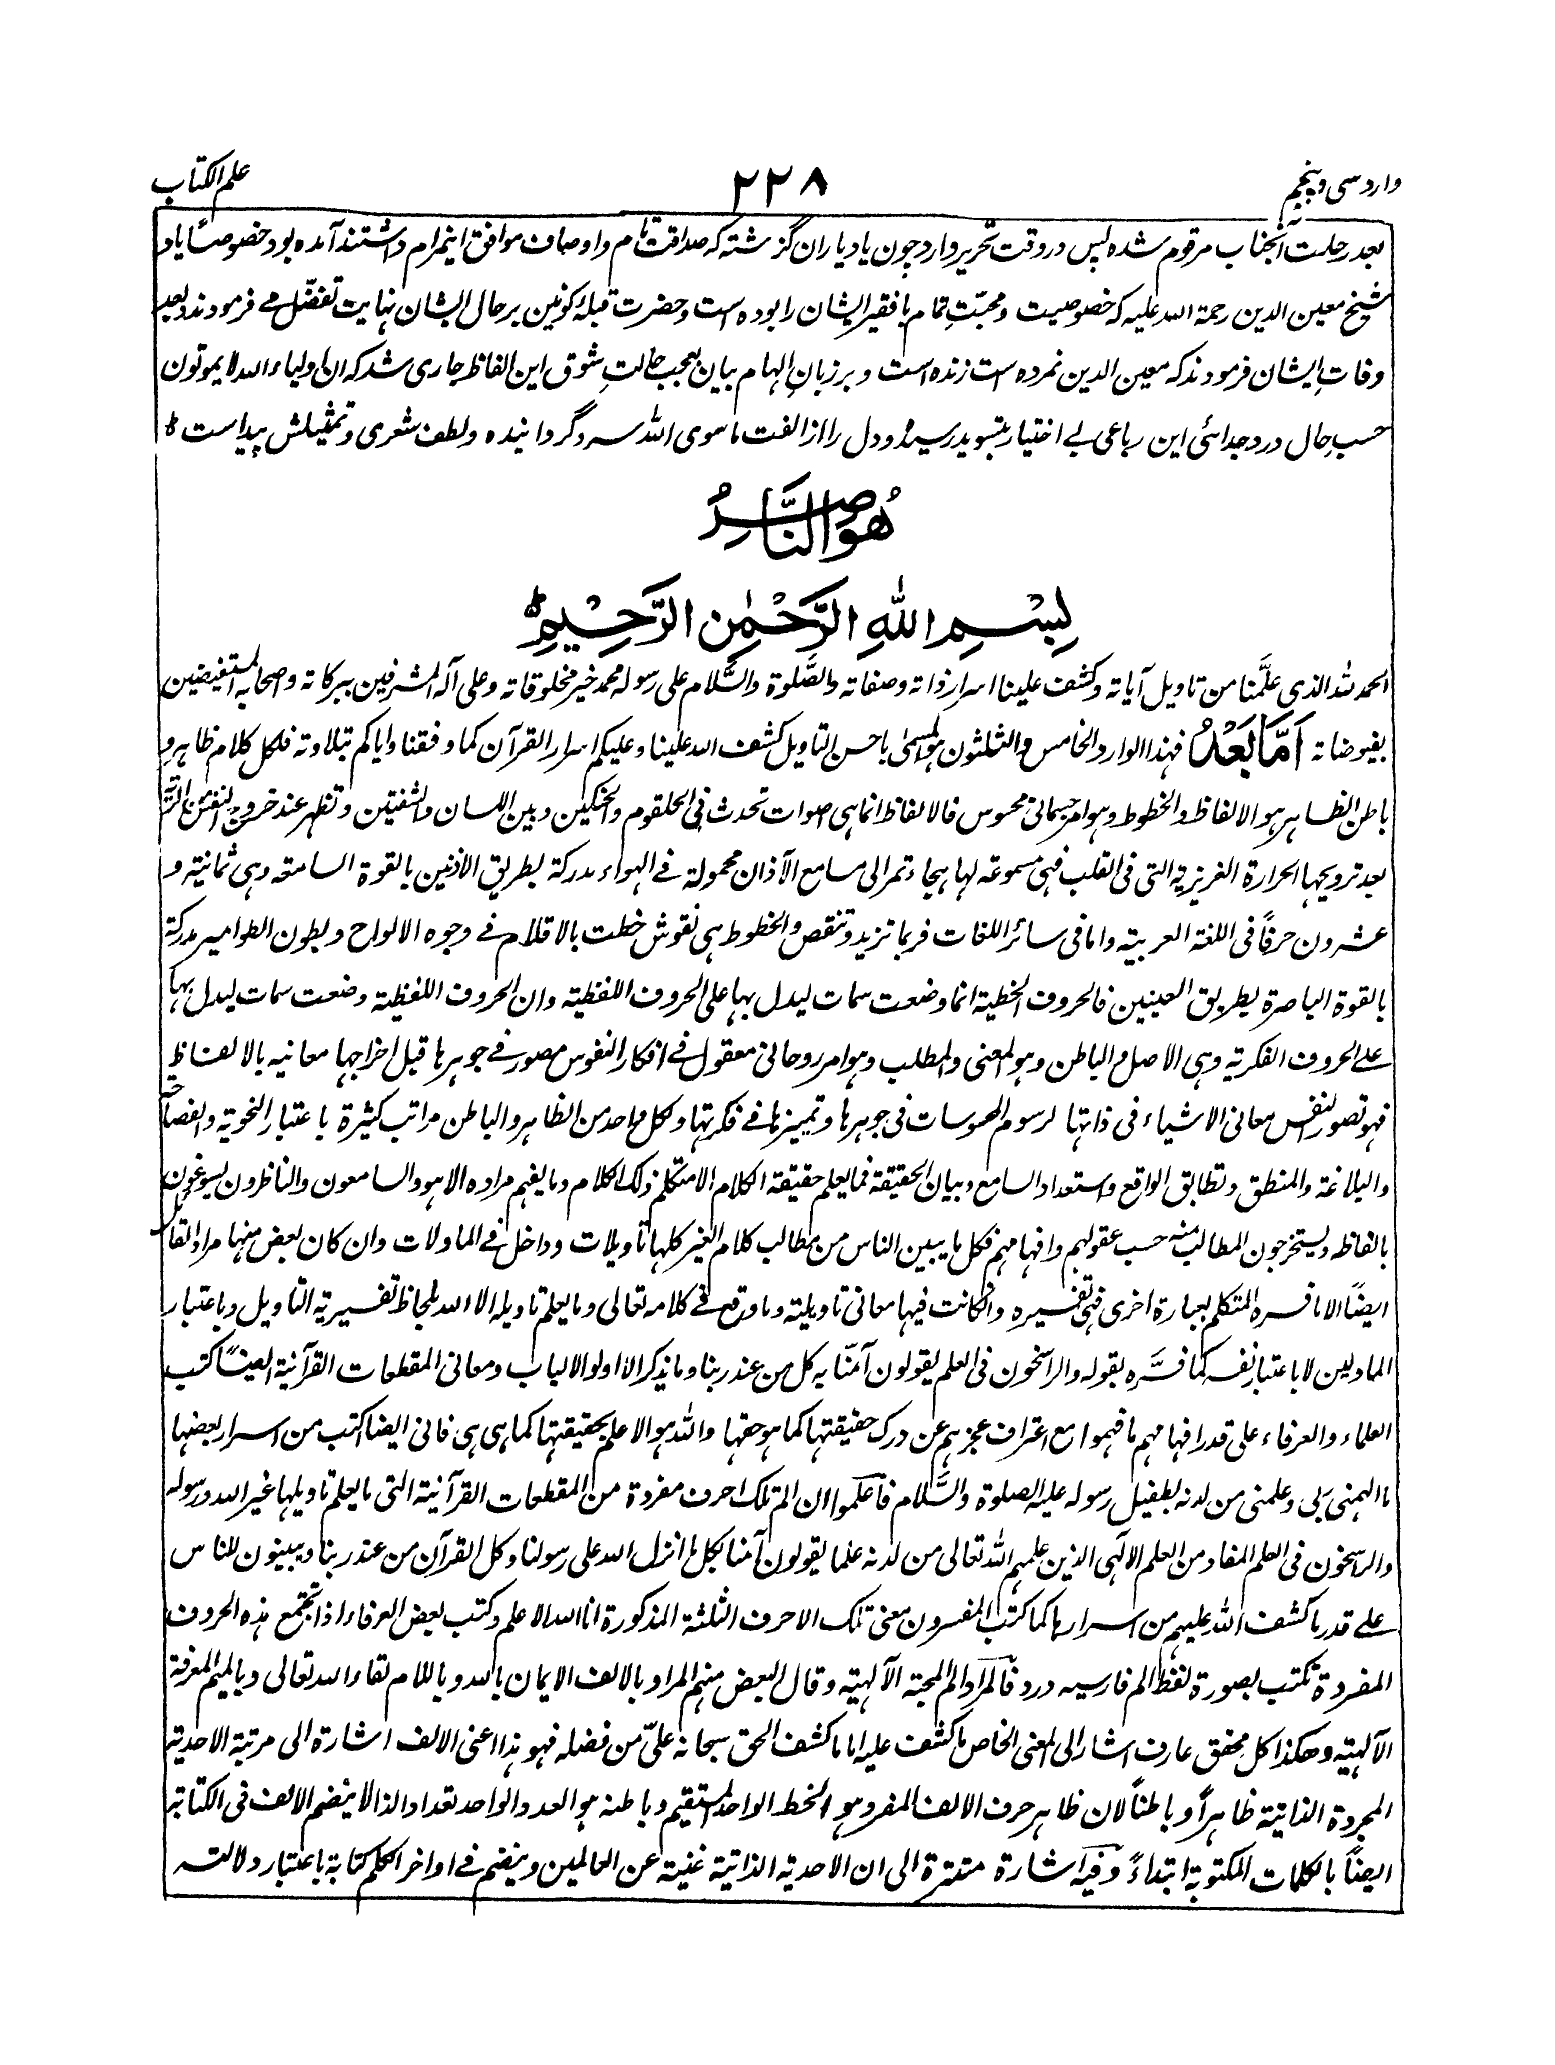 وارد سی و پنجم
۲۲۸
علم الکتاب
بعد رحلت آنجناب مرقوم شده پس در وقت تحریر وارد چون یاد یاران گزشته که صداقت تام و اوصاف موافق اینمرام داشتند آمده بود خصوصاً یاد
شیخ معین الدین رحمة الله علیه که خصوصیت و محبّتِ تمام با فقیر ایشان را بوده است و حضرت قبلهٔ کونین بر حال ایشان نهایت تفضّل مے فرمودند و بعد
وفاتِ ایشان فرمودند که معین الدین نمرده است زنده است و بر زبانِ الهام بیان بعجب حالتِ شوق این الفاظ جاری شد که ان اولیاء الله لا یموتون
حسب حال درد جدائی این رباعی بے اختیار بتسوید رسید و دل را از الفت ما سوی الله سرد گردانیده و لطف شعری و تمثیلش پیداست
هُوَ النَّاصِرُ
بِسْمِ اللهِ الرَّحْمٰنِ الرَّحِیْمِ
الحمد لله الذی علَّمنا من تاویل آیاته وکشف علینا اسرار ذاته وصفاته والصَّلوة والسَّلام علی رسوله محمد خیر مخلوقاته وعلی آله المشرفین ببرکاته واصحابه المستفیضین
بفیوضاته اَمَّا بَعْدُ فهذا الوارد الخامس والثلثون هو المسمیٰ باحسن التاویل کشف الله علینا وعلیکم اسرار القرآن کما وفقنا وایاکم تبلاوته فلکل کلام ظاهر و
باطن الظاهر هو الالفاظ والخطوط وهو امر جسمانی محسوس فالالفاظ انما هی اصوات تحدث فی الحلقوم والحنکین وبین اللسان والشفتین وتظهر عند خروج النفس من
بعد ترویحها الحرارة الغریزیة التی فی القلب فهی مسموعة لها هجاء تمر الی مسامع الآذان محمولة فے الهواء مدرکة بطریق الاذنین بالقوة السامعة وهی ثمانیة و
عشرون حرفاً فی اللغة العربیة واما فی سائر اللغات فربما تزید وتنقص والخطوط هی نقوش خطت بالاقلام فے وجوه الالواح وبطون الطوامیر مدرکة
بالقوة الباصرة بطریق العینین فالحروف الخطیة انما وضعت سمات لیدل بها علی الحروف اللفظیة وان الحروف اللفظیة وضعت سمات لیدل بها
علے الحروف الفکریة وهی الاصل والباطن وهو المعنی والمطلب وهو امر روحانی معقول فے افکار النفوس مصور فے جوهرها قبل اخراجها معانیه بالالفاظ
فهو تصور النفس معانی الاشیاء فی ذاتها لرسوم المحسوسات فی جوهرها وتمییزها فے فکرتها ولکل واحد من الظاهر والباطن مراتب کثیرة باعتبار النحویة والفصاحة
والبلاغة والمنطق وتطابق الواقع واستعداد السامع وبیان الحقیقة فما یعلم حقیقة الکلام الا متکلم ذلک الکلام وما یفهم مراده الا هو والسامعون والناظرون یسوغون
بالفاظه ویستخرجون المطالب منه حسب عقولهم وافهامهم فکل ما یبین الناس من مطالب کلام الغیر کلها تاویلات وداخل فے الماولات وان کان بعض منها مراد القائل
ایضاً الا ما فسره المتکلم بعبارة اخری فهی تفسیره وان کانت فیها معانی تاویلیة وما وقع فے کلامه تعالی وما یعلم تاویله الا الله بلحاظ تفسیریة التاویل وباعتبار
الماولین لا باعتبار نفسه کما فسَّره بقوله والراسخون فی العلم یقولون آمنّا به کل من عند ربنا وما یذکر الا اولو الالباب ومعانی المقطعات القرآنیة ایضاً کتب
العلماء والعرفاء علی قدر افهامهم ما فهموا مع اعتراف عجزهم عن درک حقیقتها کما هو حقها والله هو الاعلم بحقیقتها کما هی هی فانی ایضا اکتب من اسرار بعضها
ما الهمنی ربی وعلمنی من لدنه بطفیل رسوله علیه الصلوة والسَّلام فاعلموا ان الم تلک احرف مفردة من المقطعات القرآنیة التی ما یعلم تاویلها غیر الله ورسوله
والراسخون فی العلم المفاد من العلم الالٰهی الذین علمهم الله تعالی من لدنه علما یقولون آمنا بکل ما انزل الله علی رسولنا وکل القرآن من عند ربنا ویبینون للناس
علے قدر ما کشف الله علیهم من اسرارها کما کتب المفسرون معنی تلک الاحرف الثلثة المذکورة انا الله الاعلم وکتب بعض العرفاء اذا تجتمع هذه الحروف
المفردة تکتب بصورة لفظ الم فارسیه درد فالمراد الم المحبة الآلهیة وقال البعض منهم المراد بالالف الایمان بالله وباللام لقاء الله تعالی وبالمیم المعرفة
الآلهیة وهکذا کل محقق عارف اشار الی المعنی الخاص ما کشف علیه اما ما کشف الحق سبحانه علیّ من فضله فهو هذا اعنی الالف اشارة الی مرتبة الاحدیة
المجردة الذاتیة ظاهراً وباطناً لان ظاهر حرف الالف المفرد هو الخط الواحد المستقیم وباطنه هو العدد الواحد تعداد الذا لا ینضم الالف فی الکتابة
ایضاً بالکلمات المکتوبة ابتداءً وفیه اشارة الی ان الاحدیة الذاتیة غنیة عن العالمین وینضم فے اواخر الکلم کتابة باعتبار دلالته